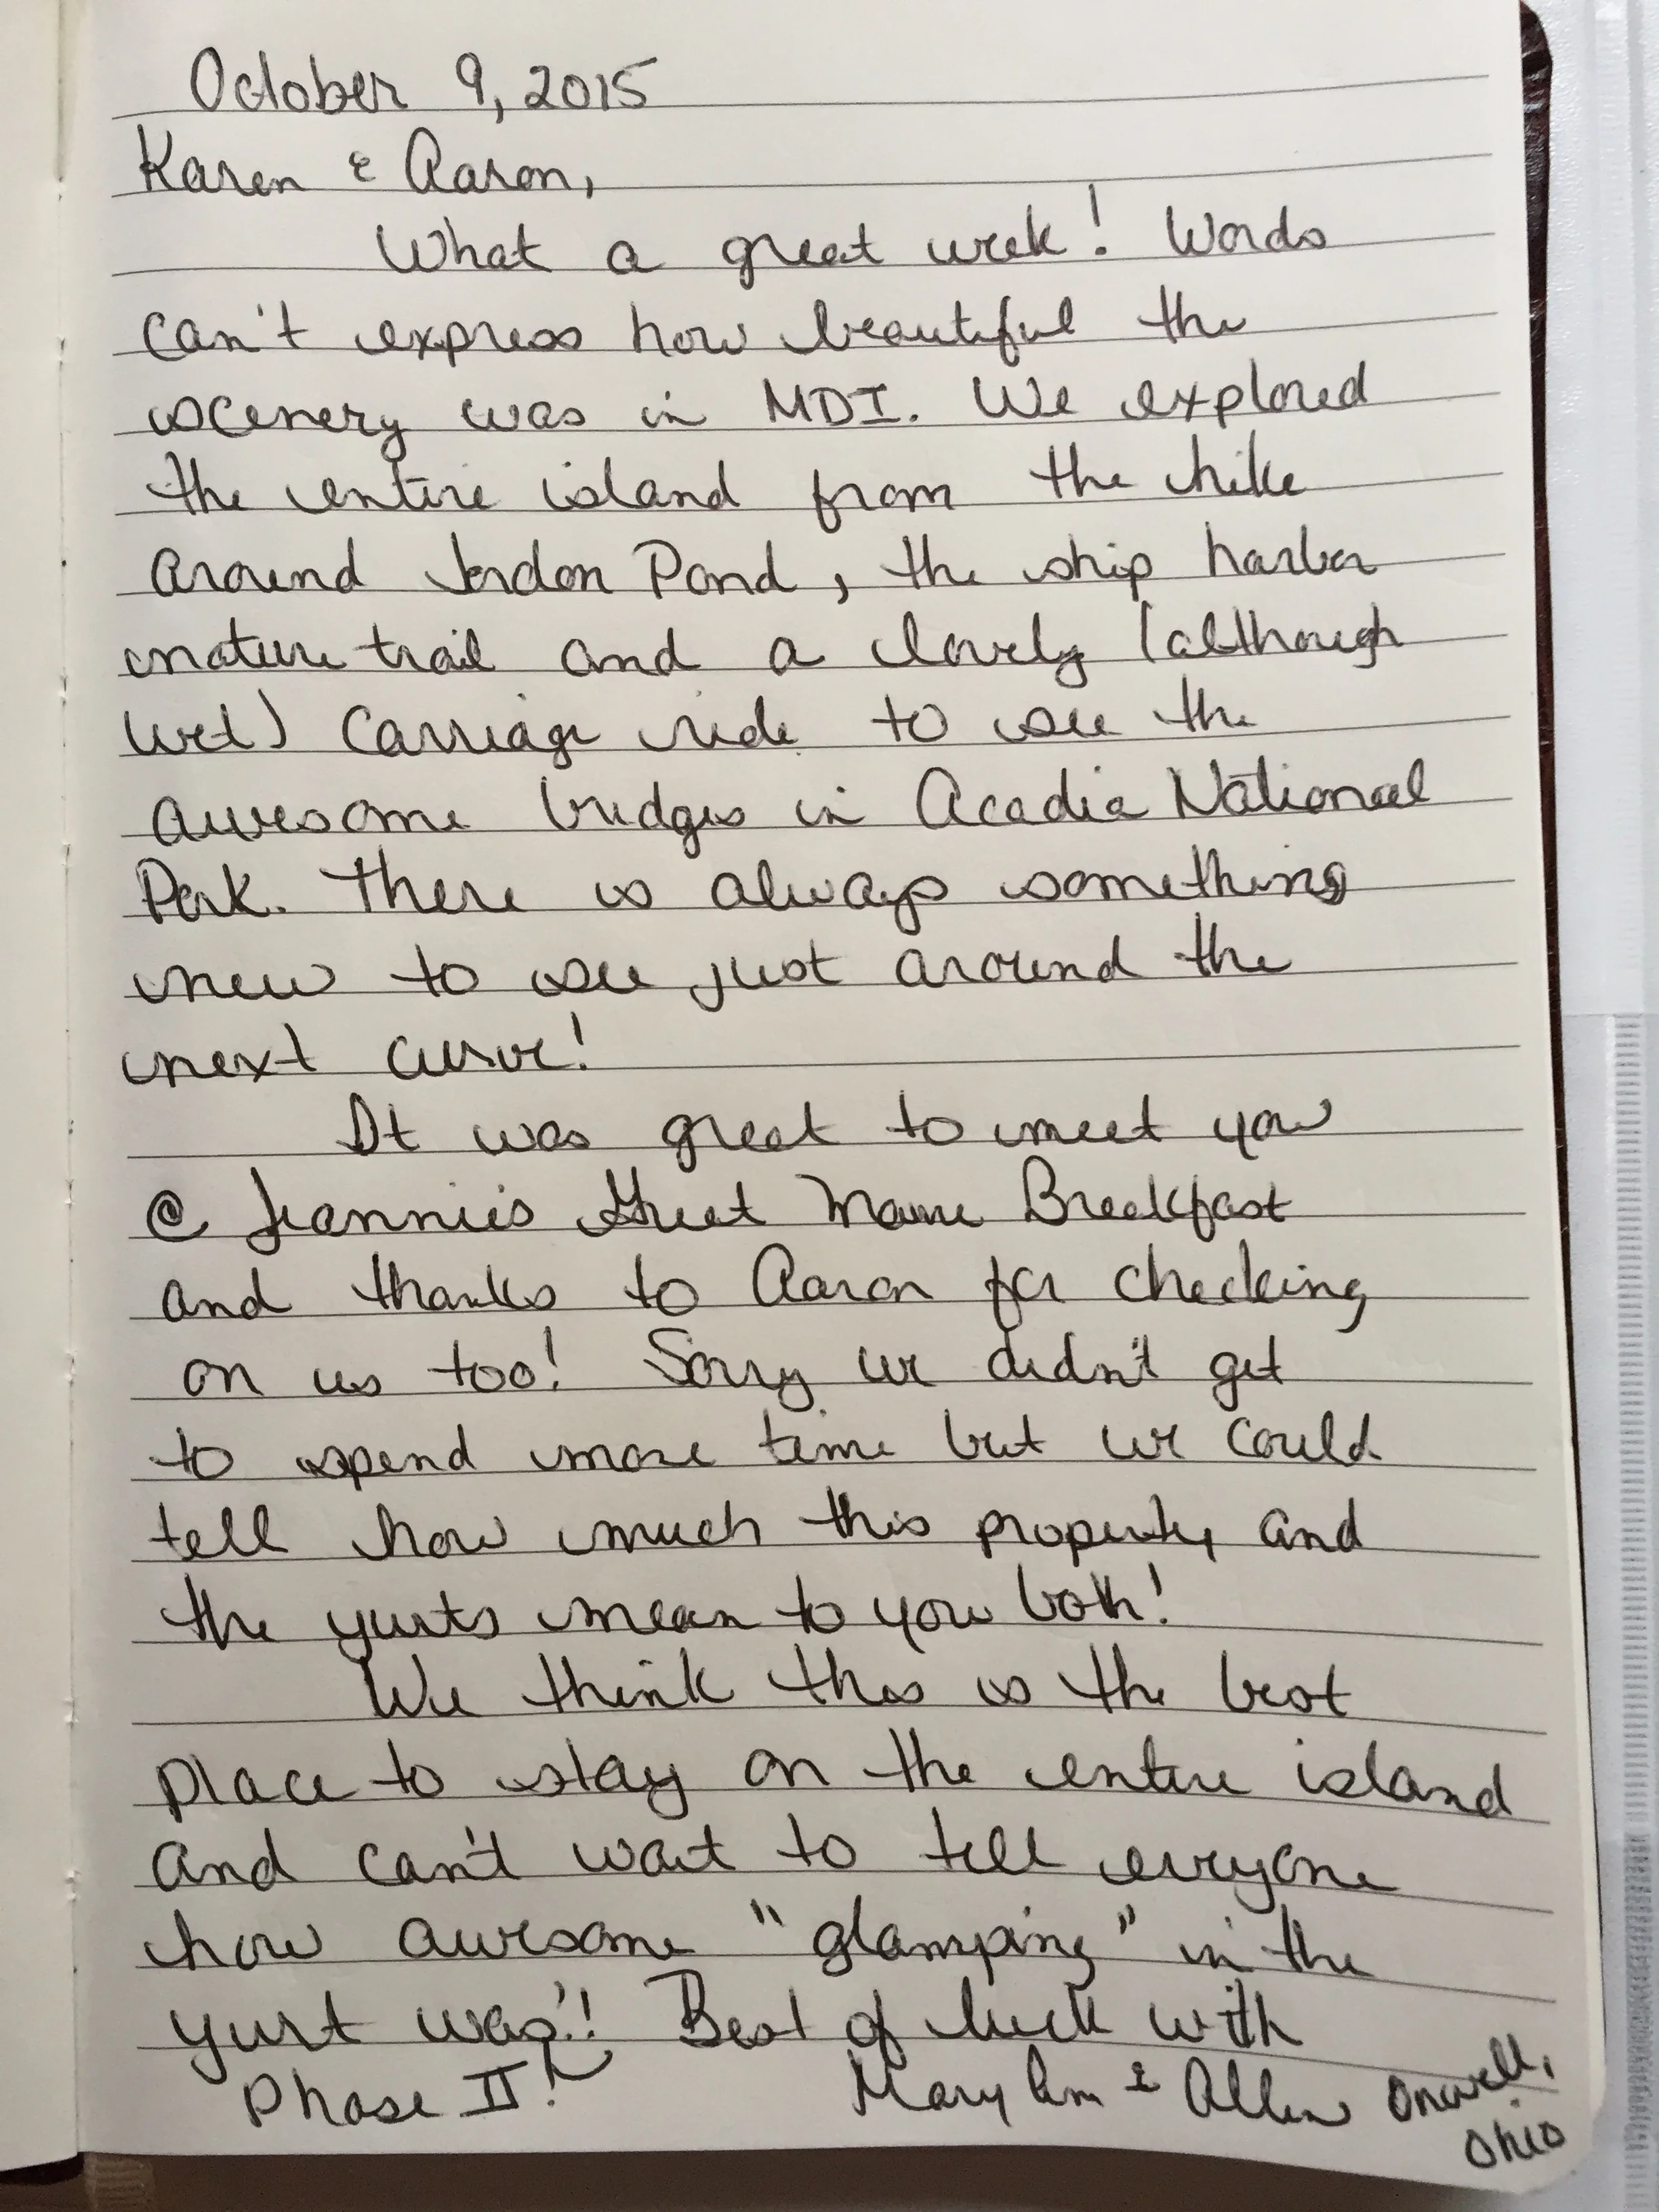 October 9, 2015
Karen & Aaron,
What a great week! Words
can't express how beautiful the
scenery was in MDI. We explored
the entire island from the hike
around Jordon Pond, the ship harbor
nature trail and a lovely (although
wet) carriage ride to see the
awesome bridges in Acadia National
Park. There is always something
new to see just around the
next curve!
It was great to meet you
@ Jeannie's Great Maine Breakfast
and thanks to Aaron for checking
on us too! Sorry we didn't get
to spend more time but we could
tell how much this property and
the yurts mean to you both!
We think this is the best
place to stay on the entire island
and can't wait to tell everyone
how awesome "glamping" in the
yurt was!! Best of luck with
Phase II!
Mary Ann & Allen Orwell,
Ohio